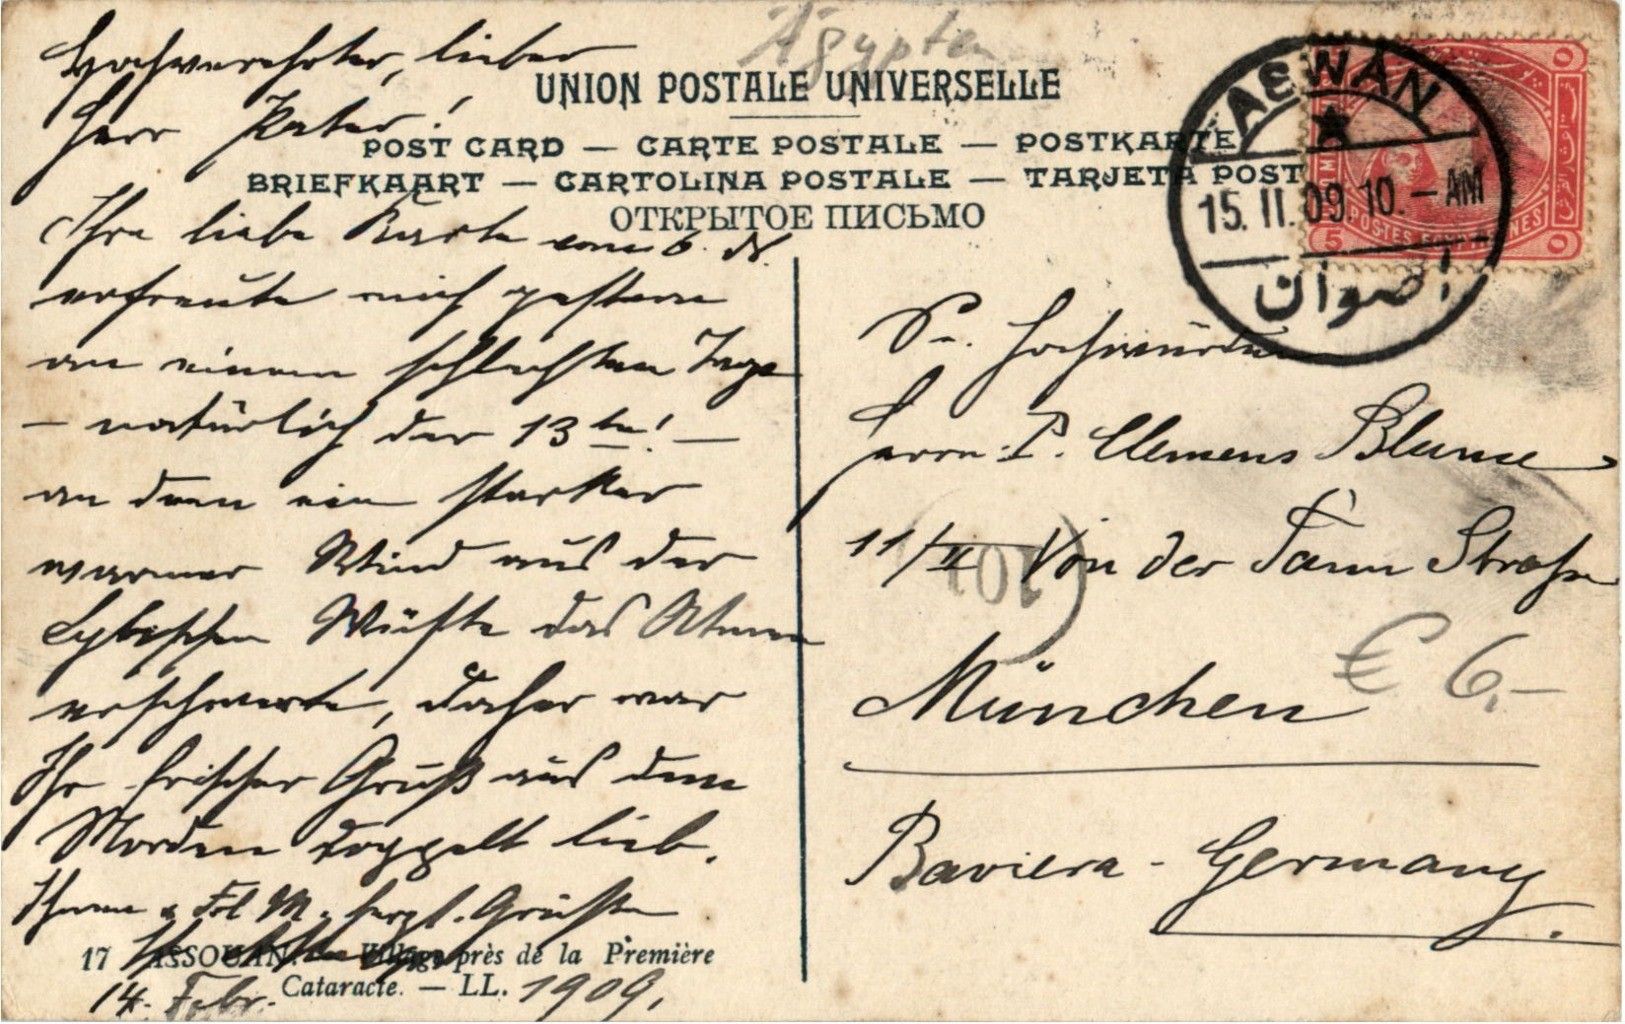 Ägypten
UNION POSTALE UNIVERSELLE
POST CARD — CARTE POSTALE — POSTKARTE
BRIEFKAART — CARTOLINA POSTALE — TARJETA POST
ОТКРЫТОЕ ПИСЬМО
ASWAN
15. II. 09 10. - AM
اصوان
5
POSTES EGYPTIENNES
Hochverehrter, lieber
Herr Pater!
Ihre liebe Karte vom 6. ds.
erfreute mich gestern
an einem schlechten Tage
- natürlich der 13te! -
an dem ein starker
warmer Wind aus der
Lybischen Wüste das Atmen
erschwerte, daher war
Ihr frischer Gruß aus dem
Norden doppelt lieb.
Ihnen & Frl M. herzl. Grüße
14. Febr. 1909.
17 ASSOUAN. Village près de la Première
Cataracte. — LL.
Sr. Hochwürden
Herrn P. Clemens Blume
11/II Von der Tann Straße
101
München
€ 6,-
Baviera - Germany.